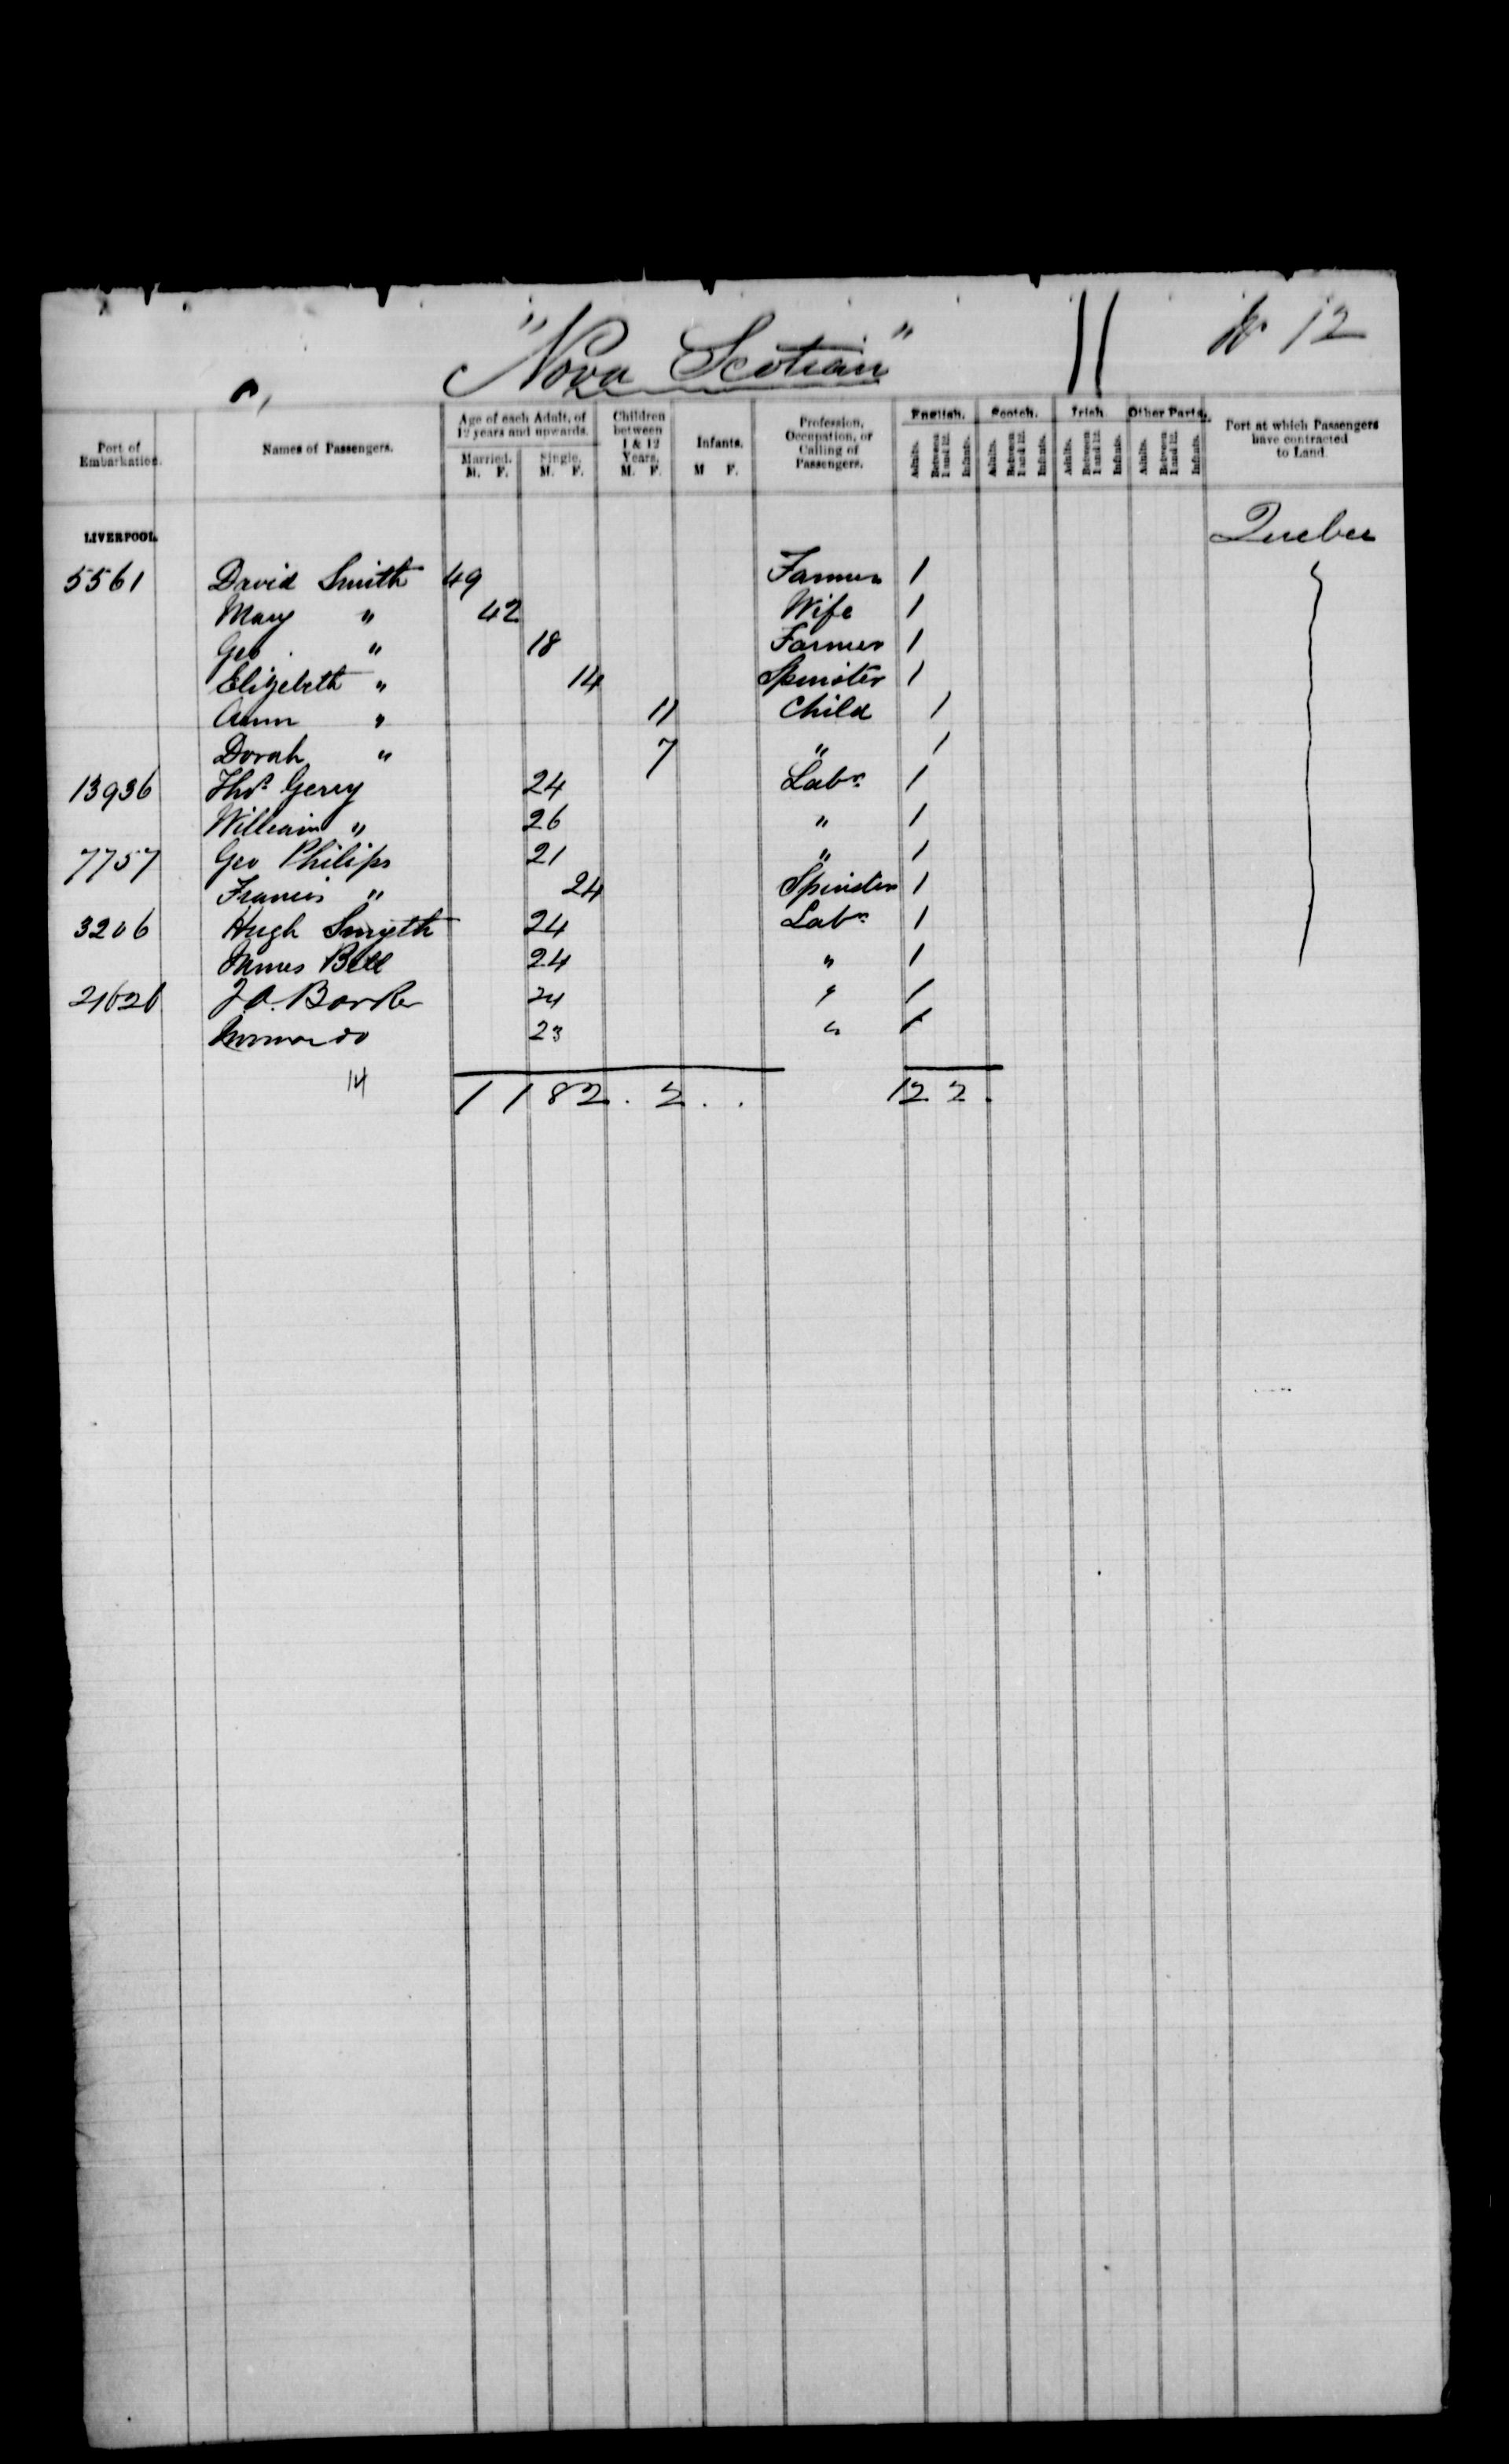 "Nova Scotian" 11 No 12
Port of Embarkation. Names of Passengers. Age of each Adult, of 12 years and upwards. Children between 1 & 12 Years. Infants. Profession, Occupation, or Calling of Passengers. English. Scotch. Irish. Other Parts. Port at which Passengers have contracted to Land.
Married. M. F. Single. M. F. M. F. M F. Adults. Between 1 and 12. Infants. Adults. Between 1 and 12. Infants. Adults. Between 1 and 12. Infants. Adults. Between 1 and 12. Infants.
LIVERPOOL. Quebec
5561 David Smith 49 Farmer 1
Mary " 42 Wife 1
Geo. " 18 Farmer 1
Elizebeth " 14 Spinster 1
Aunn " 11 Child 1
Dorah " 7 " 1
13936 Thos Gerry 24 Labr 1
William " 26 " 1
7757 Geo Philips 21 " 1
Francis " 24 Spinster 1
3206 Hugh Smyth 24 Labr 1
James Bell 24 " 1
21626 J A. Barker 24 " 1
do 23 " 1
14 1 1 8 2 . 2 . . 12 2 .